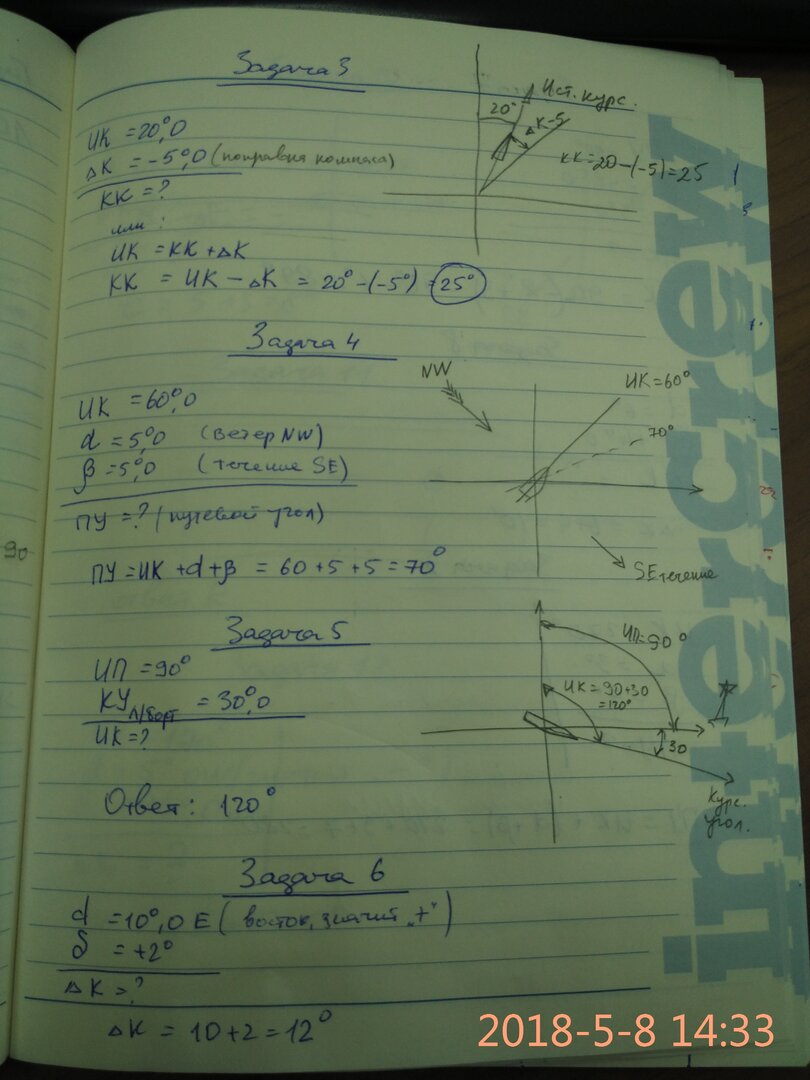 Задача 3
ИК = 20°,0
ΔК = -5°,0 (поправка компаса)
КК = ?
или:
ИК = КК + ΔК
КК = ИК - ΔК = 20° - (-5°) = 25°
20°
Ист. курс.
ΔК-5
КК = 20 - (-5) = 25
Задача 4
ИК = 60°,0
d = 5°,0 (ветер NW)
β = 5°,0 (течение SE)
ПУ = ? (путевой угол)
ПУ = ИК + d + β = 60 + 5 + 5 = 70°
NW
ИК = 60°
70°
SE течение
Задача 5
ИП = 90°
КУ л/борт = 30°,0
ИК = ?
Ответ: 120°
ИП = 90°
ИК = 90+30
= 120°
30
Курс.
угол.
Задача 6
d = 10°,0 E (восток, значит „+")
δ = +2°
ΔК = ?
ΔК = 10 + 2 = 12°
90
intercrew
intercrew
2018-5-8 14:33